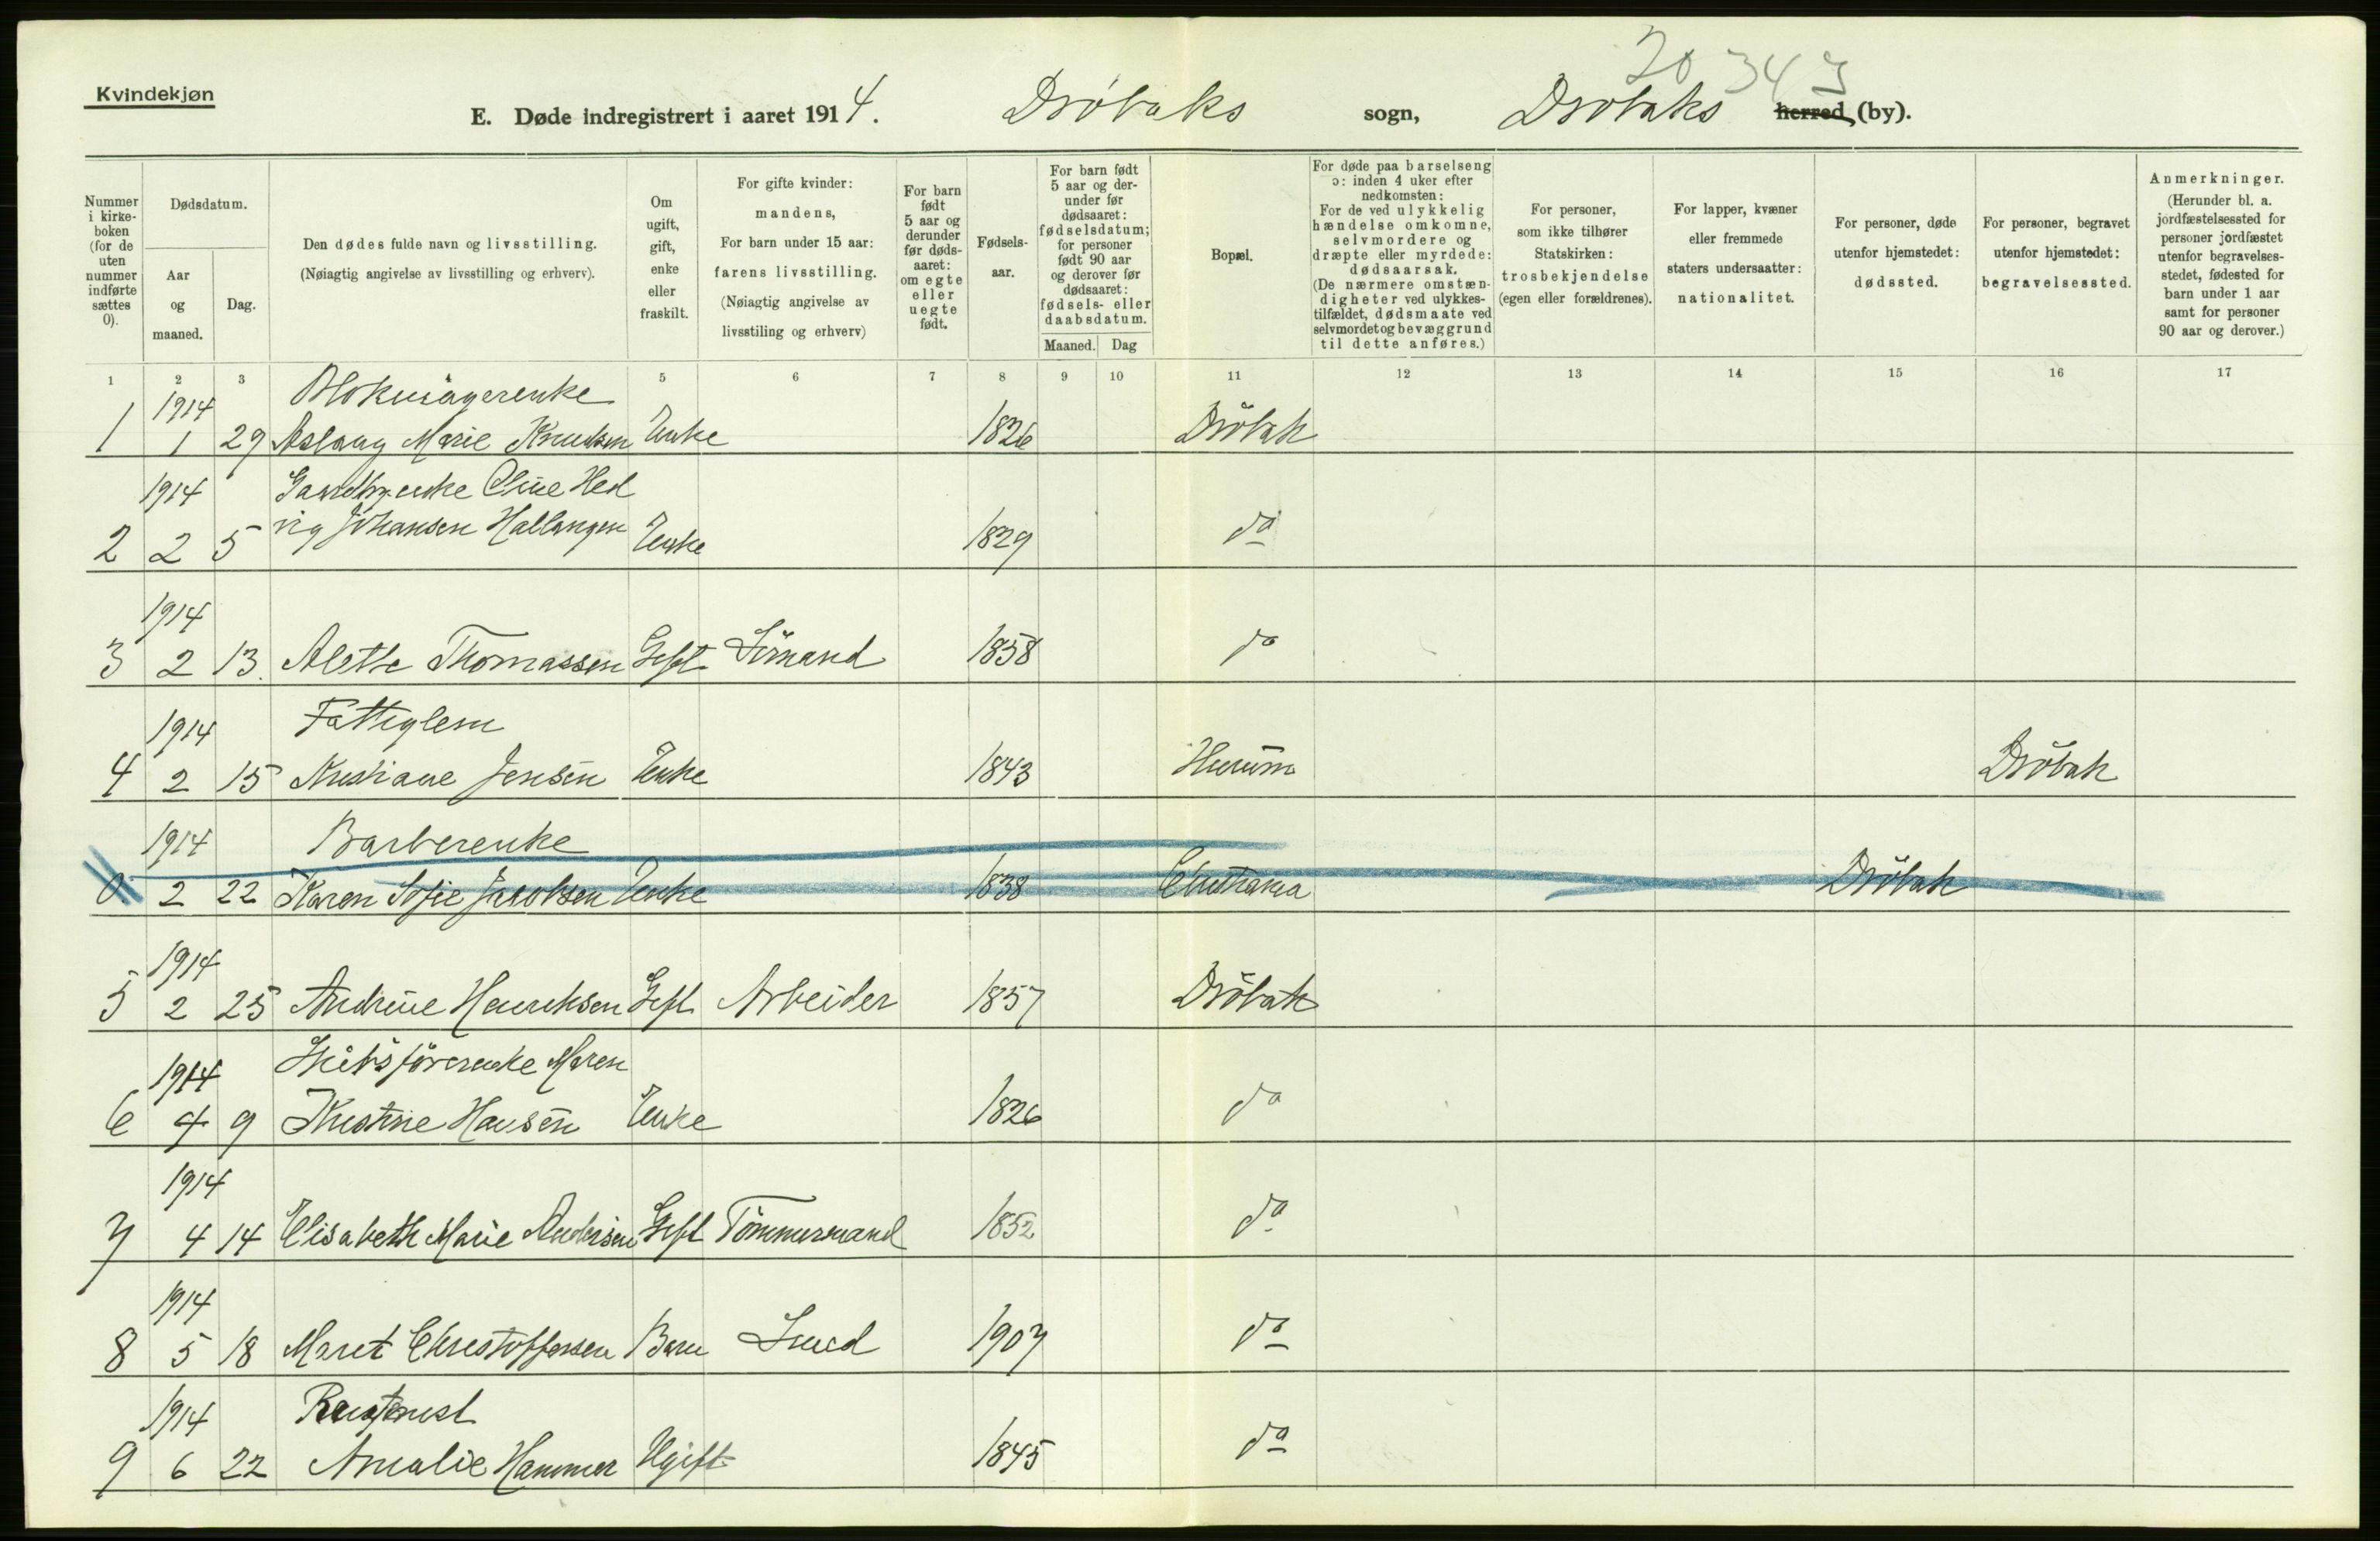 20 343
Kvindekjøn
E. Døde indregistrert i aaret 1914. Drøbaks sogn, Drøbaks herred (by).
Nummer i kirke-boken (for de uten nummer indførte sættes 0).
Dødsdatum.
Aar og maaned.
Dag.
Den dødes fulde navn og livsstilling.
(Nøiagtig angivelse av livsstilling og erhverv).
Om ugift, gift, enke eller fraskilt.
For gifte kvinder: mandens,
For barn under 15 aar: farens livsstilling.
(Nøiagtig angivelse av livsstiling og erhverv)
For barn født 5 aar og derunder før døds-aaret: om egte eller uegte født.
Fødsels-aar.
For barn født 5 aar og der-under før dødsaaret: fødselsdatum; for personer født 90 aar og derover før dødsaaret: fødsels- eller daabsdatum.
Maaned. Dag
Bopæl.
For døde paa barselseng ɔ: inden 4 uker efter nedkomsten:
For de ved ulykkelig hændelse omkomne, selvmordere og dræpte eller myrdede: dødsaarsak.
(De nærmere omstæn-digheter ved ulykkes-tilfældet, dødsmaate ved selvmordet og bevæggrund til dette anføres.)
For personer, som ikke tilhører Statskirken: trosbekjendelse (egen eller forældrenes).
For lapper, kvæner eller fremmede staters undersaatter: nationalitet.
For personer, døde utenfor hjemstedet: dødssted.
For personer, begravet utenfor hjemstedet: begravelsessted.
Anmerkninger.
(Herunder bl. a. jordfæstelsessted for personer jordfæstet utenfor begravelses-stedet, fødested for barn under 1 aar samt for personer 90 aar og derover.)
1 2 3 5 6 7 8 9 10 11 12 13 14 15 16 17
1914
1 1 29 Aslaug Marie Knudsen Enke 1826 Drøbak
1914 Oline Hed
2 2 5 vig Johansen Hallangen Enke 1829 do
1914
3 2 13. Alette Thomassen Gift Sømand 1858 do
1914 Fattiglem
4 2 15 Kristiane Jensen Enke 1843 Hurum Drøbak
1914 Barberenke
0 2 22 Karen Sofie Jacobsen Enke 1838 Christiania Drøbak
1914
5 2 25 Andrine Henriksen Gift Arbeider 1857 Drøbak
1914 Skibsførerenke Maren
6 4 9 Kristine Hansen Enke 1826 do
1914
7 4 14 Elisabeth Marie Andersen Gift Tømmermand 1852 do
1914
8 5 18 Maret Christoffersen Barn Smed 1907 do
1914
9 6 22 Amalie Hammer Ugift 1845 do